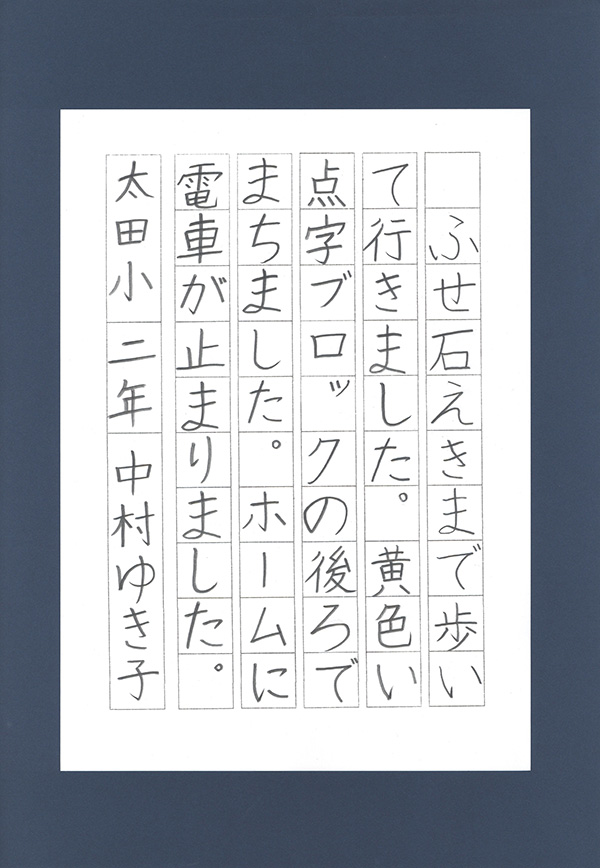 ふせ石えきまで歩い
て行きました。黄色い
点字ブロックの後ろで
まちました。ホームに
電車が止まりました。
太田小 二年 中村ゆき子